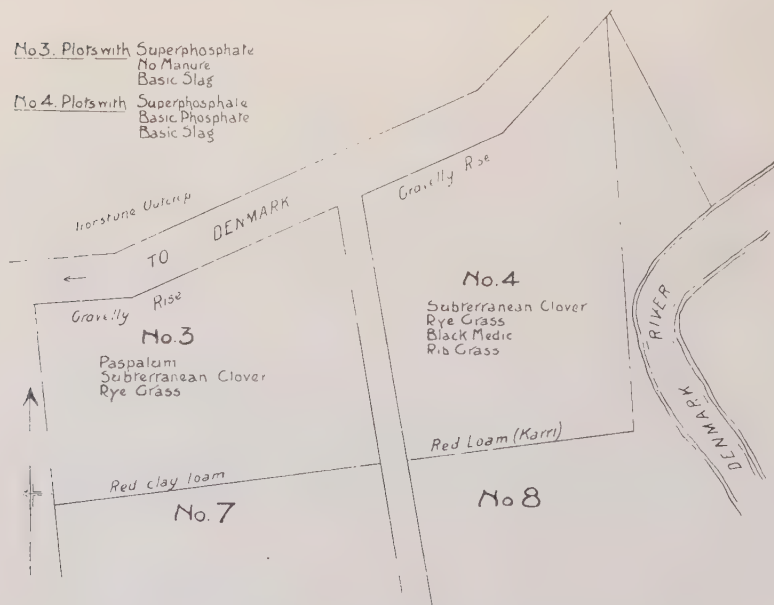 No 3. Plots with Superphosphate
No Manure
Basic Slag
No 4. Plots with Superphosphate
Basic Phosphate
Basic Slag
Gravelly Rise
TO DENMARK
Gravelly Rise
No. 3
Paspalum
Subrerranean Clover
Rye Grass
No. 4
Subrerranean Clover
Rye Grass
Black Medic
Rib Grass
DENMARK RIVER
Red Loam (Karri)
Red clay loam
No. 7
No 8